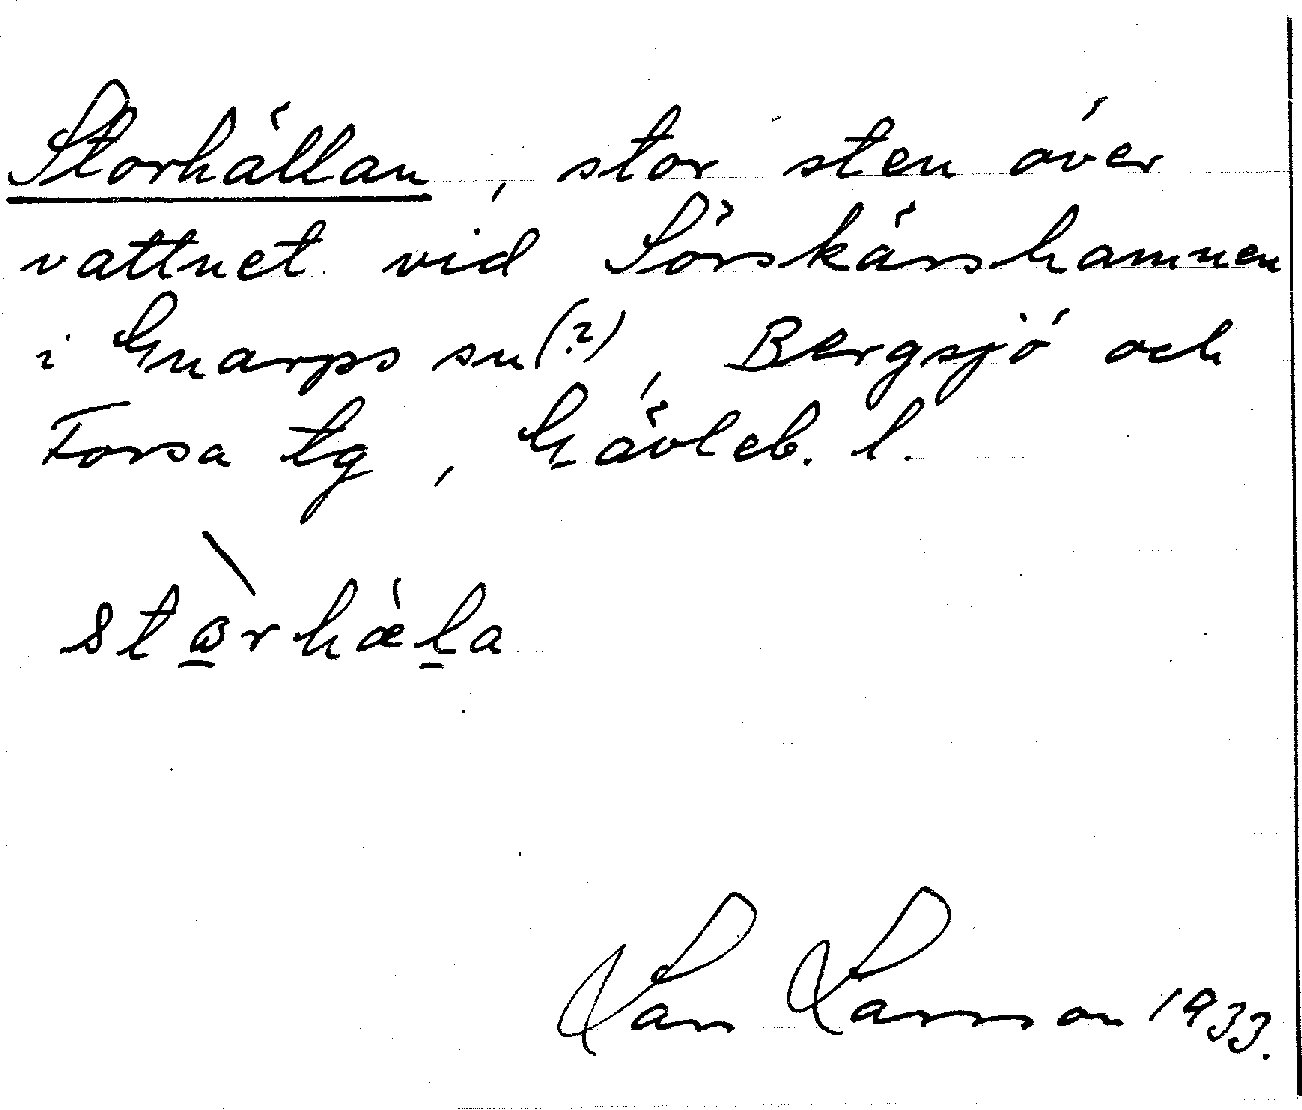 Storhällan, stor sten över
vattnet vid Sörskärshamnen
i Gnarps sn(?), Bergsjö och
Forsa tg, Gävleb. l.
Lars Larsson 1933.